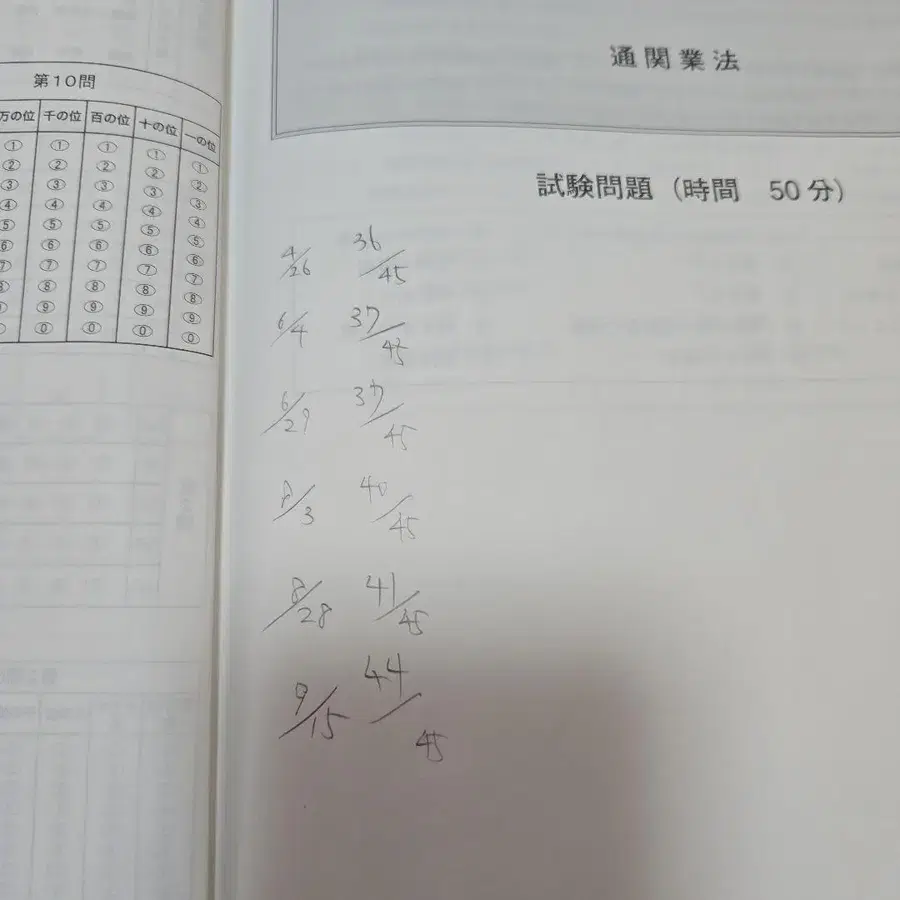 第10問
万の位 千の位 百の位 十の位 一の位
① ① ① ① ①
② ② ② ② ②
③ ③ ③ ③ ③
④ ④ ④ ④ ④
⑤ ⑤ ⑤ ⑤ ⑤
⑥ ⑥ ⑥ ⑥ ⑥
⑦ ⑦ ⑦ ⑦ ⑦
⑧ ⑧ ⑧ ⑧ ⑧
⑨ ⑨ ⑨ ⑨ ⑨
⓪ ⓪ ⓪ ⓪ ⓪
通関業法
試験問題(時間 50分)
4/26 36/45
6/4 37/45
6/29 37/45
8/3 40/45
8/28 41/45
9/15 44/45